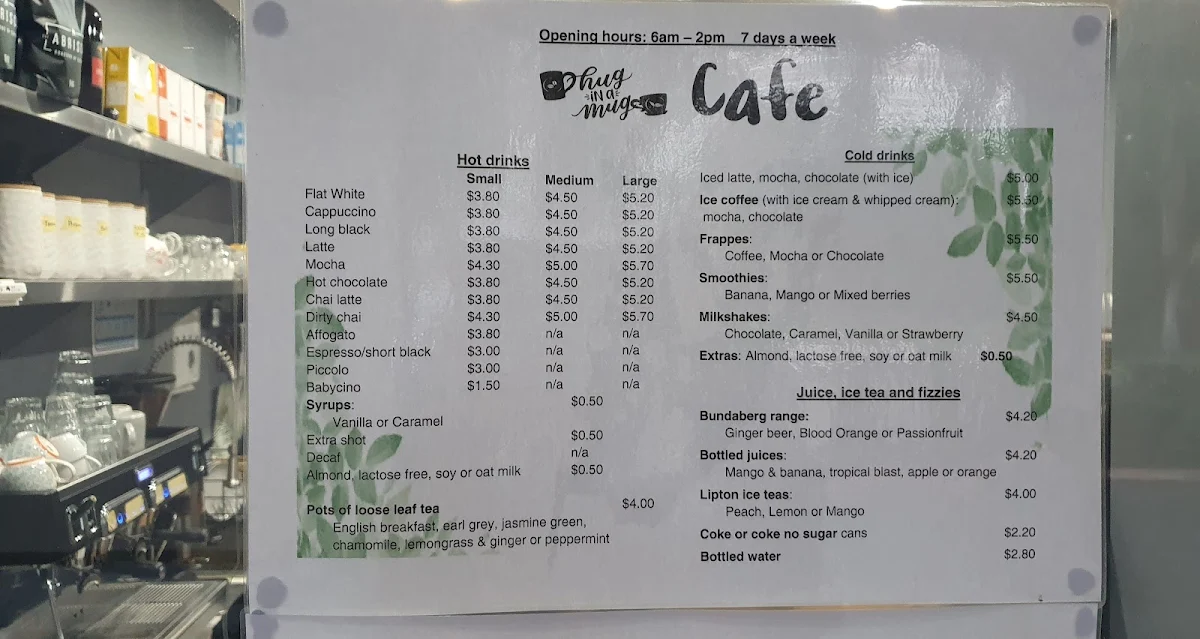 Opening hours: 6am – 2pm 7 days a week
hug
IN a
mug
Cafe
Hot drinks
Small Medium Large
Flat White $3.80 $4.50 $5.20
Cappuccino $3.80 $4.50 $5.20
Long black $3.80 $4.50 $5.20
Latte $3.80 $4.50 $5.20
Mocha $4.30 $5.00 $5.70
Hot chocolate $3.80 $4.50 $5.20
Chai latte $3.80 $4.50 $5.20
Dirty chai $4.30 $5.00 $5.70
Affogato $3.80 n/a n/a
Espresso/short black $3.00 n/a n/a
Piccolo $3.00 n/a n/a
Babycino $1.50 n/a n/a
Syrups: $0.50
Vanilla or Caramel
Extra shot $0.50
Decaf n/a
Almond, lactose free, soy or oat milk $0.50
Pots of loose leaf tea $4.00
English breakfast, earl grey, jasmine green,
chamomile, lemongrass & ginger or peppermint
Cold drinks
Iced latte, mocha, chocolate (with ice) $5.00
Ice coffee (with ice cream & whipped cream): $5.50
mocha, chocolate
Frappes: $5.50
Coffee, Mocha or Chocolate
Smoothies: $5.50
Banana, Mango or Mixed berries
Milkshakes: $4.50
Chocolate, Caramel, Vanilla or Strawberry
Extras: Almond, lactose free, soy or oat milk $0.50
Juice, ice tea and fizzies
Bundaberg range: $4.20
Ginger beer, Blood Orange or Passionfruit
Bottled juices: $4.20
Mango & banana, tropical blast, apple or orange
Lipton ice teas: $4.00
Peach, Lemon or Mango
Coke or coke no sugar cans $2.20
Bottled water $2.80